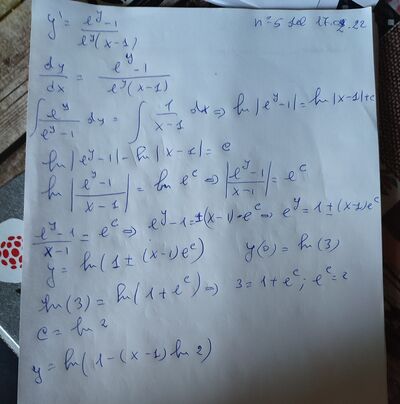 y' = e^y-1 / e^y(x-1)
dy/dx = e^y-1 / e^y(x-1)
∫ e^y / e^y-1 dy = ∫ 1 / x-1 dx ⇒ ln|e^y-1| = ln|x-1|+c
ln|e^y-1| - ln|x-1| = c
ln|e^y-1 / x-1| = ln e^c ⇒ |e^y-1 / x-1| = e^c
e^y-1 / x-1 = e^c ⇒ e^y-1 = ±(x-1)·e^c ⇒ e^y = 1±(x-1)e^c
y = ln(1 ± (x-1)e^c) y(0) = ln(3)
ln(3) = ln(1+e^c) ⇒ 3 = 1+e^c ; e^c = 2
c = ln 2
y = ln(1-(x-1) ln 2)